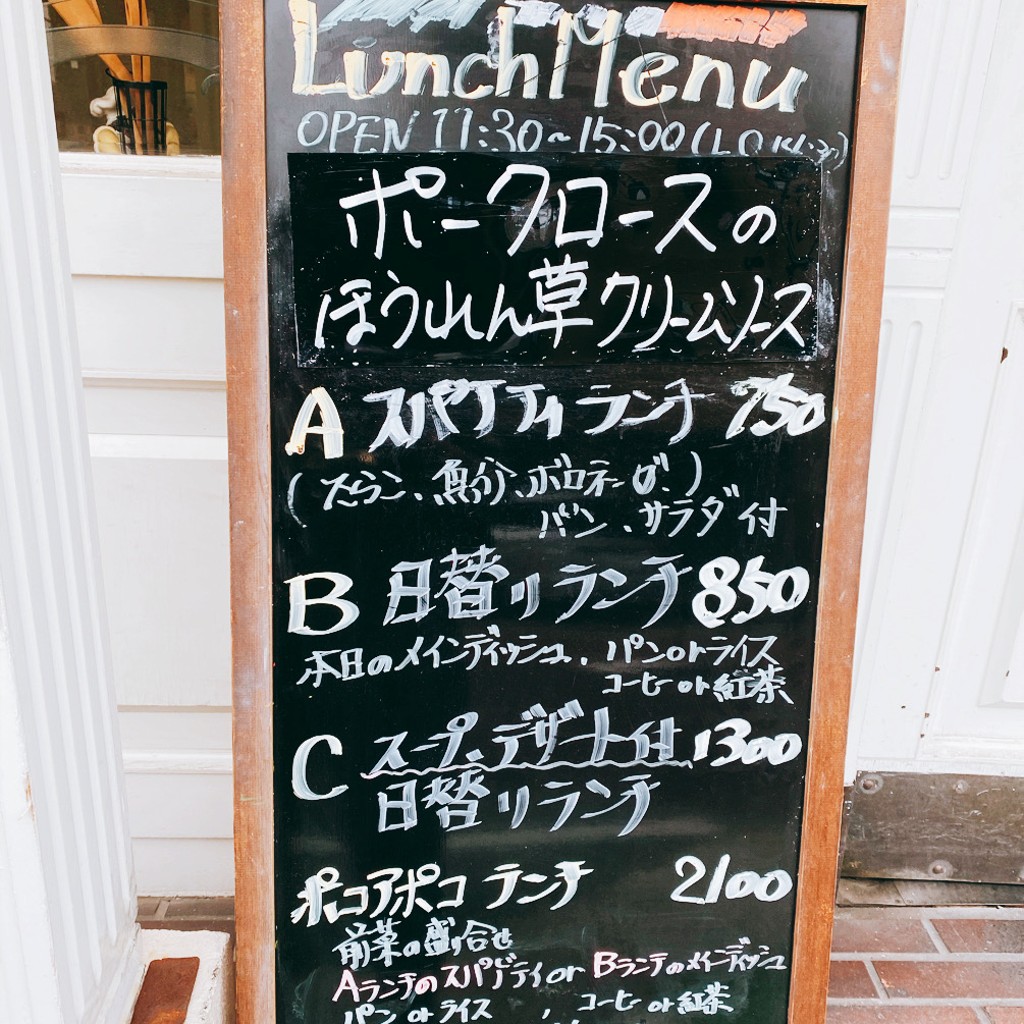 Lunch Menu
OPEN 11:30~15:00(LO
ポークロースの
ほうれん草クリームソース
A スパゲティランチ 750
(たらこ、魚介、ボロネーゼ)
パン、サラダ付
B 日替りランチ 850
本日のメインディッシュ、パンorライス
コーヒーor紅茶
C スープ、デザート付 1300
日替りランチ
ポコアポコ ランチ 2100
前菜の盛り合せ
Aランチのスパゲティ or Bランチのメインディッシュ
パン or ライス 、コーヒー or 紅茶